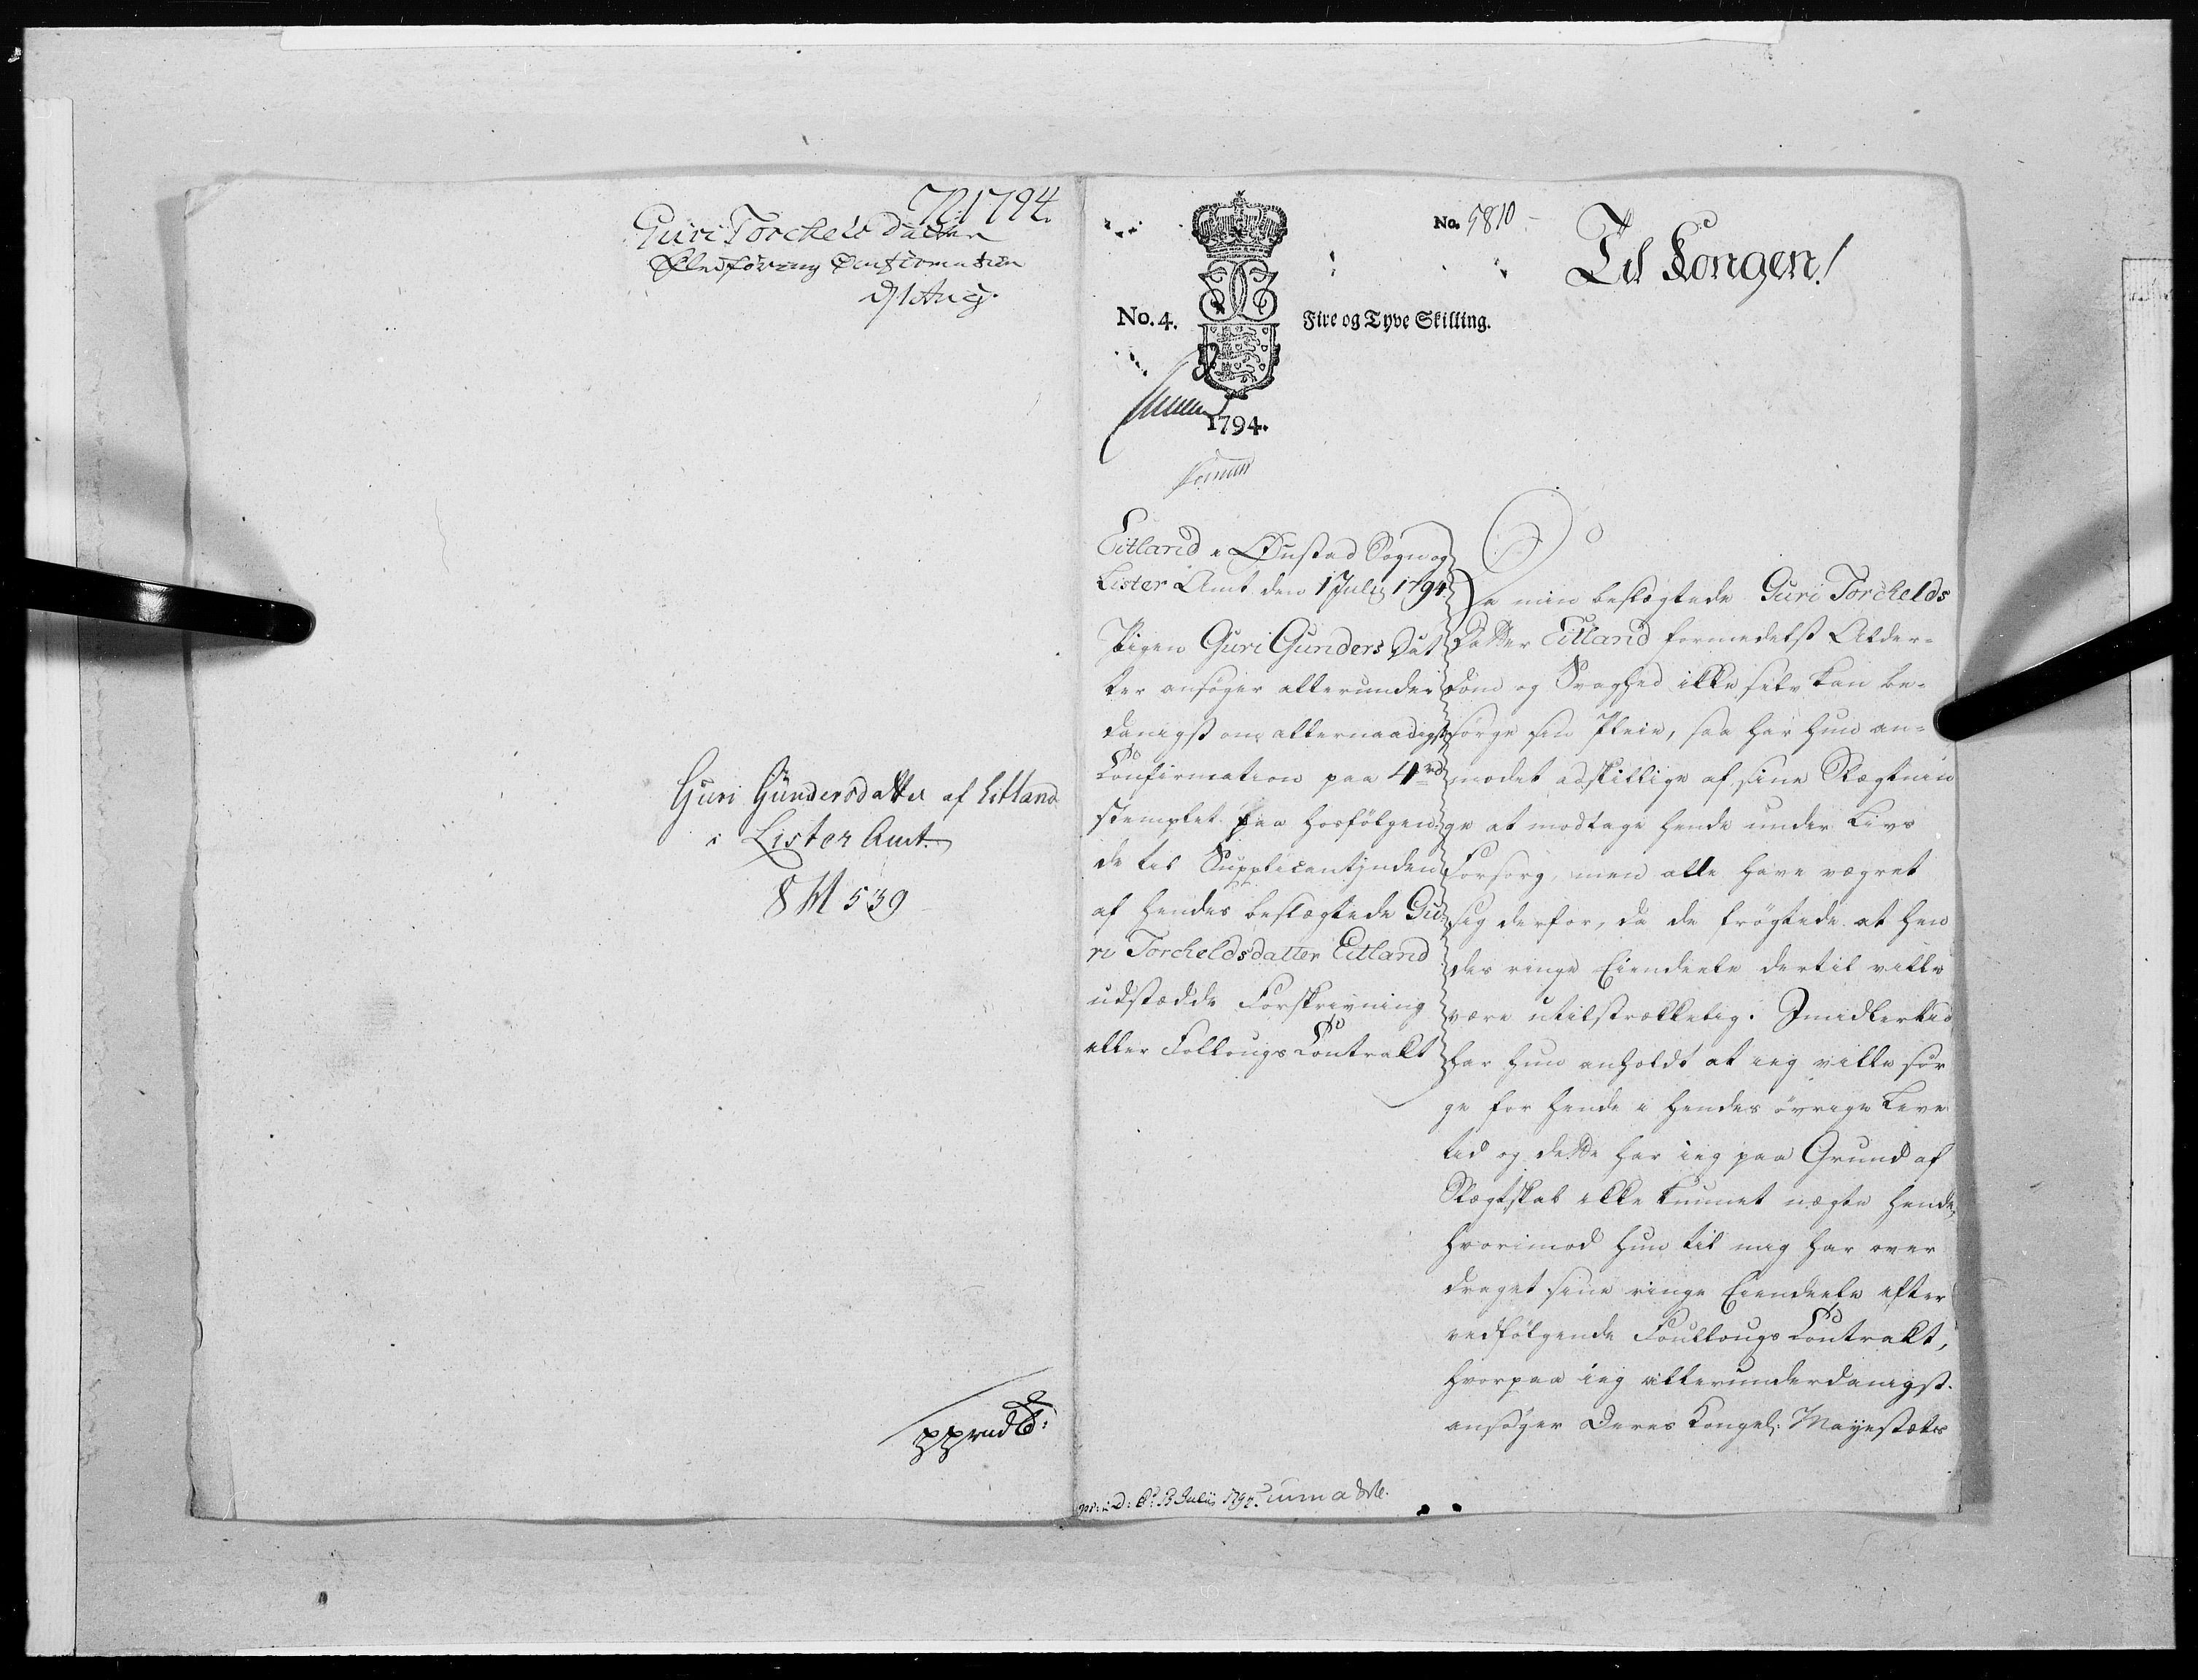 1794.
Guri Torchels Datter
Fledföring Confirmation
1 Aug.
Guri Gundersdatter af Eitland
i Lister Amt.
8 M 539
No. 5810
Til Kongen!
No. 4.
Fire og Tyve Skilling.
1794.
Eitland i Qvinstad Sogn og
Lister Amt den 1 Julij 1794
Pigen Guri Gunders Dat
ter ansøger allerunder
danigst om allernaadigst
Confirmation paa 4 rd
stemplet paa hosfølgen
de til Supplicantinden
af hendes beslægtede Gu
ri Torcheldsdatter Eitland
udstædde Forskrivning
eller Follougs Contrakt
Da min beslægtede Guri Torchelds
Datter Eitland formedelst Alder-
dom og Svaghed ikke selv kan be-
sørge sin Pleie, saa har hun an-
modet adskillige af sine Slægtnin
ge at modtage hende under Livs
Forsorg, men alle have vægret
sig derfor, da de frögtede at hen
des ringe Eiendeele dertil ville
være utilstrækkelig. Imidlertid
har hun anholdt at ieg ville sør
ge for hende i hendes övrige Leve
tid og dette har ieg paa Grund af
Slægtskab ikke kunnet nægte hende,
hvorimod hun til mig har over
draget sine ringe Eiendeele efter
vedfølgende Foullougs Contrakt,
hvorpaa ieg allerunderdanigst
ansøger Deres Kongel: Mayestæts
13 Julii 1794